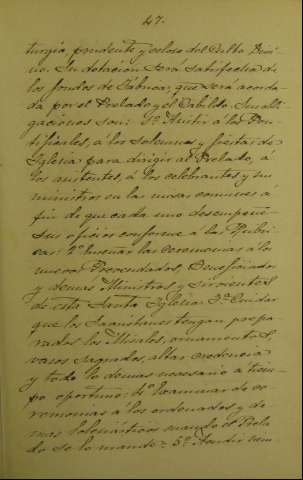 47.
turgia prudente y celoso del Culto Divi-
no. Su dotacion será satisfecha de
los fondos de Fábrica; que será acorda-
da por el Prelado y el Cabildo. Su obli-
gaciones son: 1º Asistir á los Pon-
tificales, á los solemnes y fiestas de
Iglesia para dirigir al Prelado, á
los asistentes, á los celebrantes y sus
ministros en las misas comunes á
fin de que cada uno desempeñe
sus oficios conforme á las Rúbri-
cas. 2º Enseñar las ceremonias á los
nuevos Prevendados, Beneficiados
y demas Ministros y sirvientes
de esta Santa Iglesia 3º Cuidar
que los Sacristanes tengan prepa-
rados los Misales, ornamentos,
vasos sagrados, altar credencia
y todo lo demas necesario á tiem-
po oportuno. 4º Examinar de ce-
remonias á los ordenados y de-
mas Eclesiásticos cuando el Prela-
do se lo mande. 5º Atender